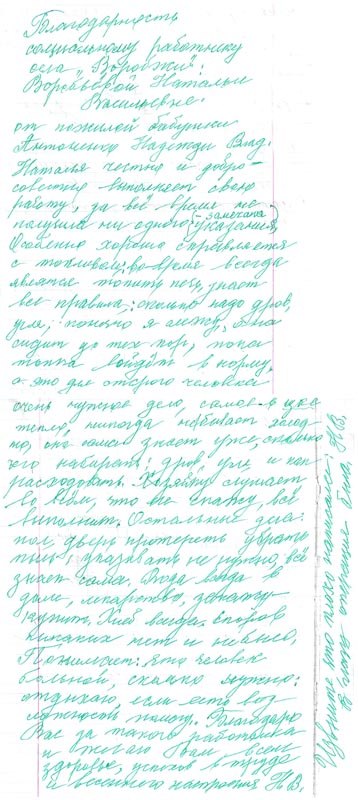 Благодарность
социальному работнику
села "Воробжи":
Воробьёвой Натальи
Васильевне.
от пожилой бабушки
Антоненко Надежды Влад.
Наталья честно и добро-
совестно выполняет свою
работу, за всё время не
получила ни одного (- замечания
указания)
Особенно хорошо справляется
с топливом: во время всегда
явится топить печь, знает
все правила; сколько надо дров,
угля; покочо я лежу, она
сидит до тех пор, пока
топка войдёт в норму,
а это для старого человека
очень нужное дело, самое
тепло, никогда не бывает холод
но, она сама знает уже, сколько
чего набирать: дров, угля и как
расходовать. Хозяйку слушает
во всём, что не скажу, всё
выполнит. Остальные дела:
пол, дверь протереть убрать
пыль; указывать не нужно, всё
знает сама. Вода всегда в
доме, лекарство, закажу
купит. Хлеб всегда. Споров
никаких нет и не было.
Понимает: что человек
больной, сколько нужно:
отдыхаю, если есть воз
можность помогу. Благодарю
Вас за такого работника
и желаю Вам всем
здоровье, успехов в труде
и весеннего настроения Н.В.
Извините что плохо написала: Н.В.
глазах операция была,